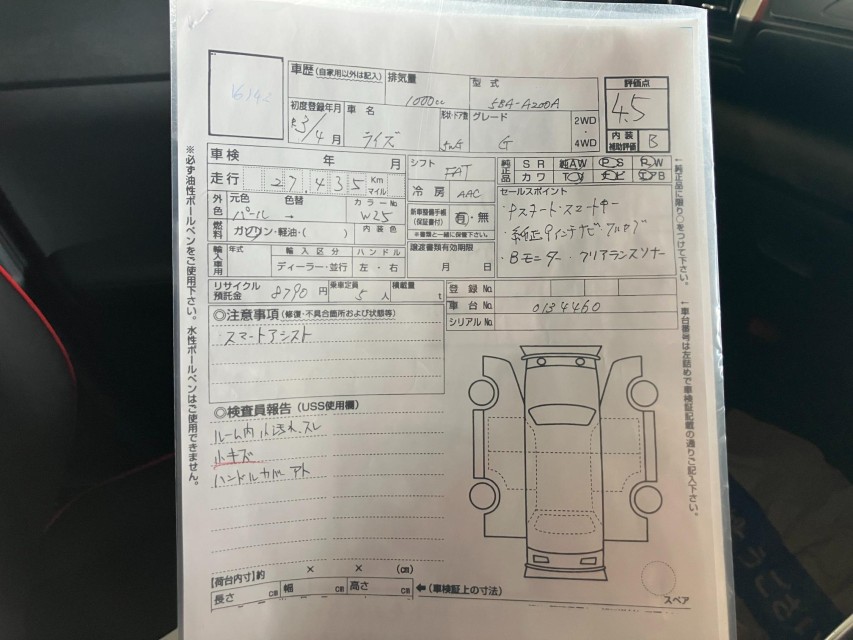 車歴(自家用以外は記入)
排気量
1000cc
型式
5BA-A200A
評価点
4.5
内装
補助評価
B
初度登録年月
R3年/4月
車名
ライズ
形状・ドア数
5W
グレード
G
2WD
・
4WD
車検 年 月
走行 27,435 Km マイル
シフト FAT
冷房 AAC
純正品 SR AW PS PW
カワ TV ナビ エアB
外色 元色 色替 カラーNo.
パール → W25
燃料 ガソリン・軽油・( ) 内装色
新車整備手帳
(保証書付)
有・無
※書類と一緒に保管下さい。
セールスポイント
・Pスタート・スマートキー
・純正9インチナビ・フルセグ
・Bモニター・クリアランスソナー
輸入車用 年式 輸入区分 ハンドル
ディーラー・並行 左・右
譲渡書類有効期限
月 日
リサイクル預託金 8790円
乗車定員 5人
積載量 t
登録No.
車台No. 0134460
シリアルNo.
◎注意事項(修復・不具合箇所および状態等)
スマートアシスト
◎検査員報告(USS使用欄)
ルーム内小汚れ.スレ
小キズ
ハンドルカバーアト
【荷台内寸】約 × × (cm)
長さ cm 幅 cm 高さ cm ←(車検証上の寸法)
スペア
※必ず油性ボールペンをご使用下さい。水性ボールペンはご使用できません。
↑純正品に限り○をつけて下さい。
←車台番号は左詰めで車検証記載の通りご記入下さい。